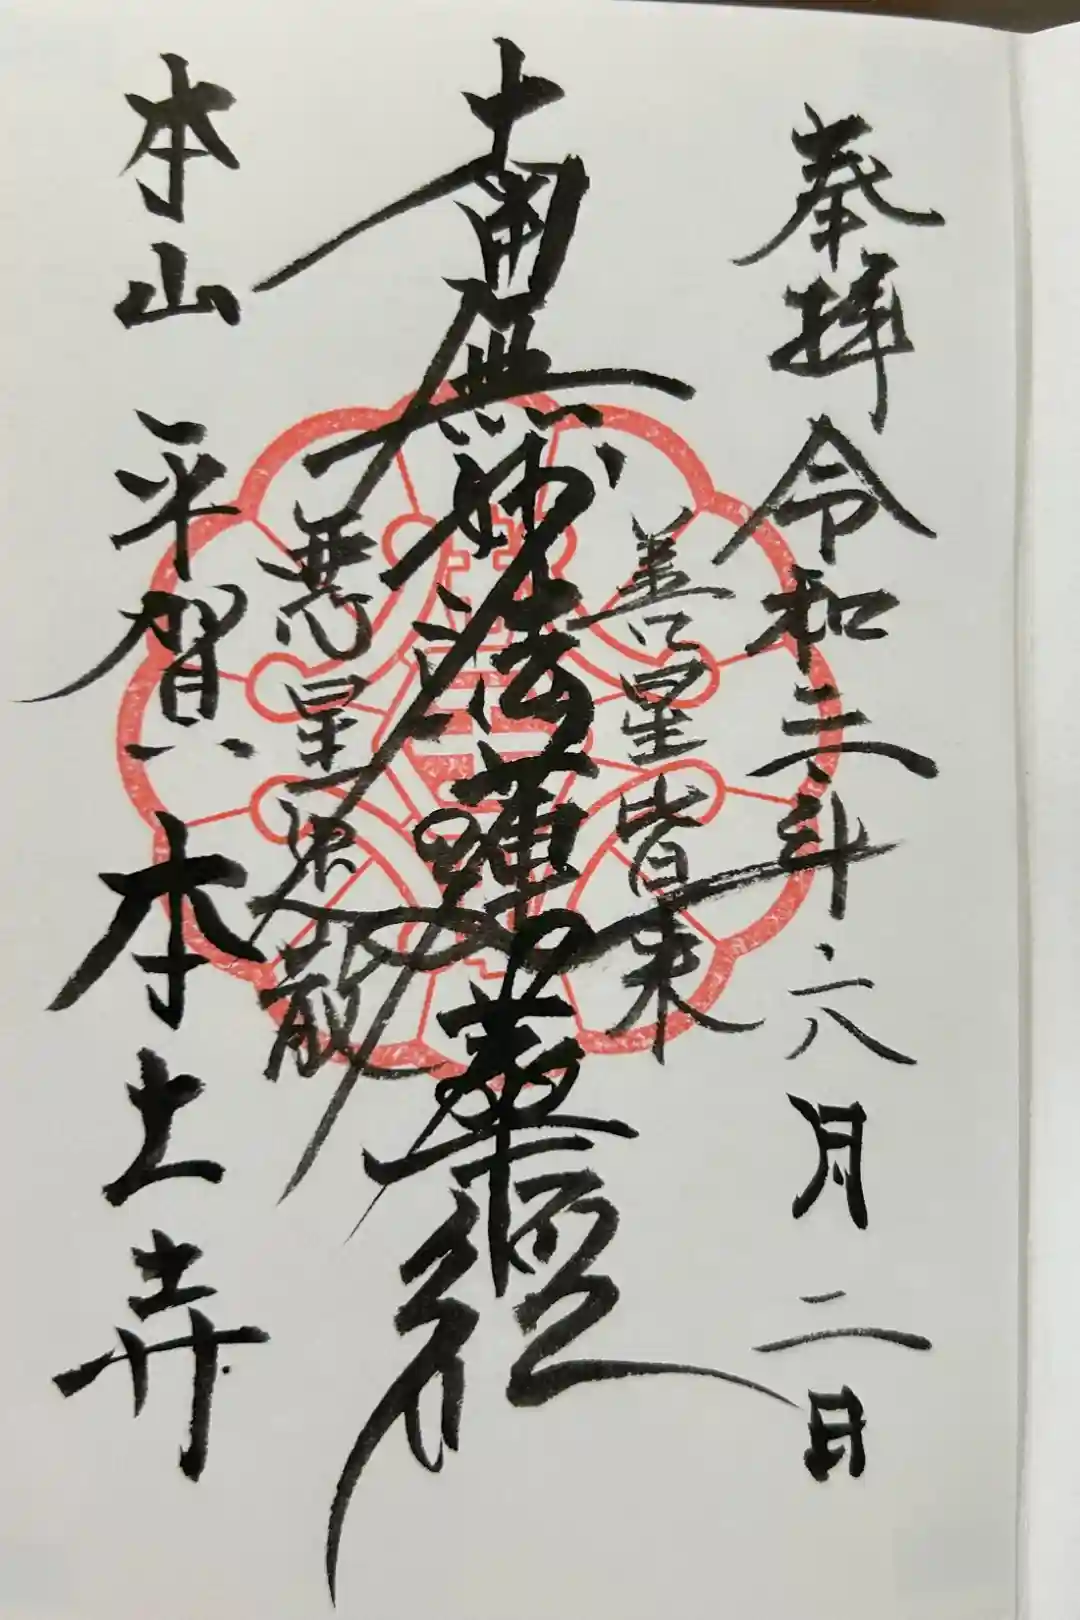 奉拝 令和三年六月二日
善星皆来
南無妙法蓮華経
悪星退散
本山 平賀 本土寺